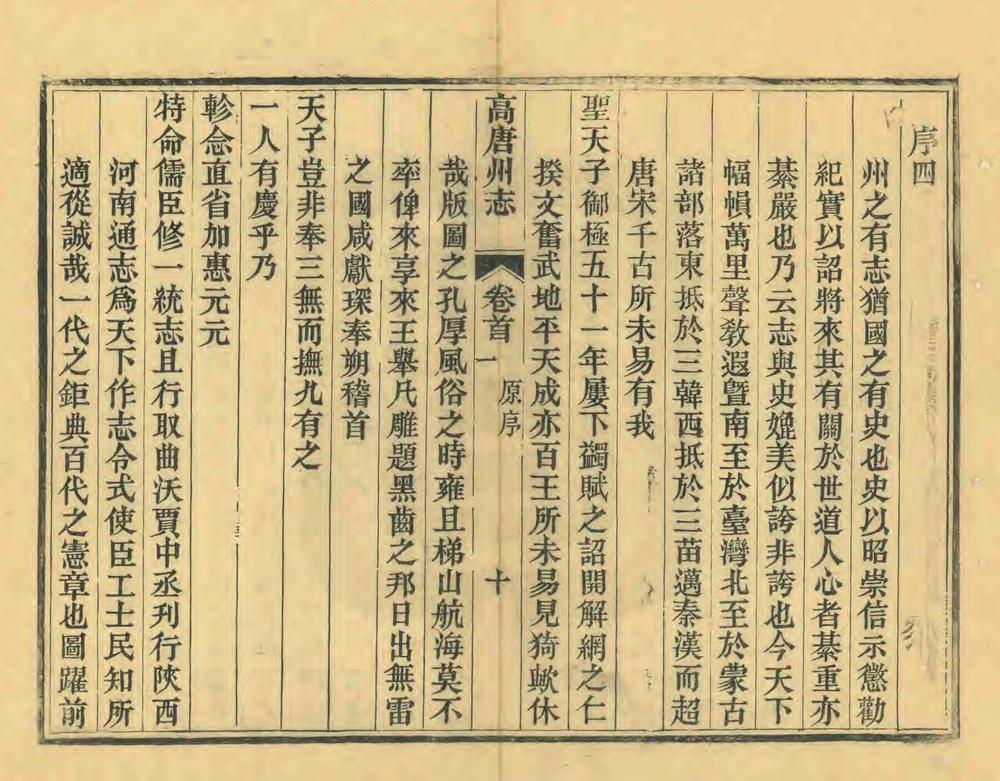 序四
州之有志猶國之有史也史以昭崇信示懲勸
紀實以詔將來其有關於世道人心者綦重亦
綦嚴也乃云志與史媲美似誇非誇也今天下
幅幀萬里聲敎遐曁南至於臺灣北至於蒙古
諸部落東抵於三韓西抵於三苗邁秦漢而超
唐宋千古所未易有我
聖天子御極五十一年屢下蠲賦之詔開解網之仁
揆文奮武地平天成亦百王所未易見猗歟休
高唐州志 卷首一 原序 十
哉版圖之孔厚風俗之時雍且梯山航海莫不
率俾來享來王舉凡雕題黑齒之邦日出無雷
之國咸獻琛奉朔稽首
天子豈非奉三無而撫九有之
一人有慶乎乃
軫念直省加惠元元
特命儒臣修一統志且行取曲沃賈中丞刋行陜西
河南通志爲天下作志令式使臣工士民知所
適從誠哉一代之鉅典百代之憲章也圖躍前